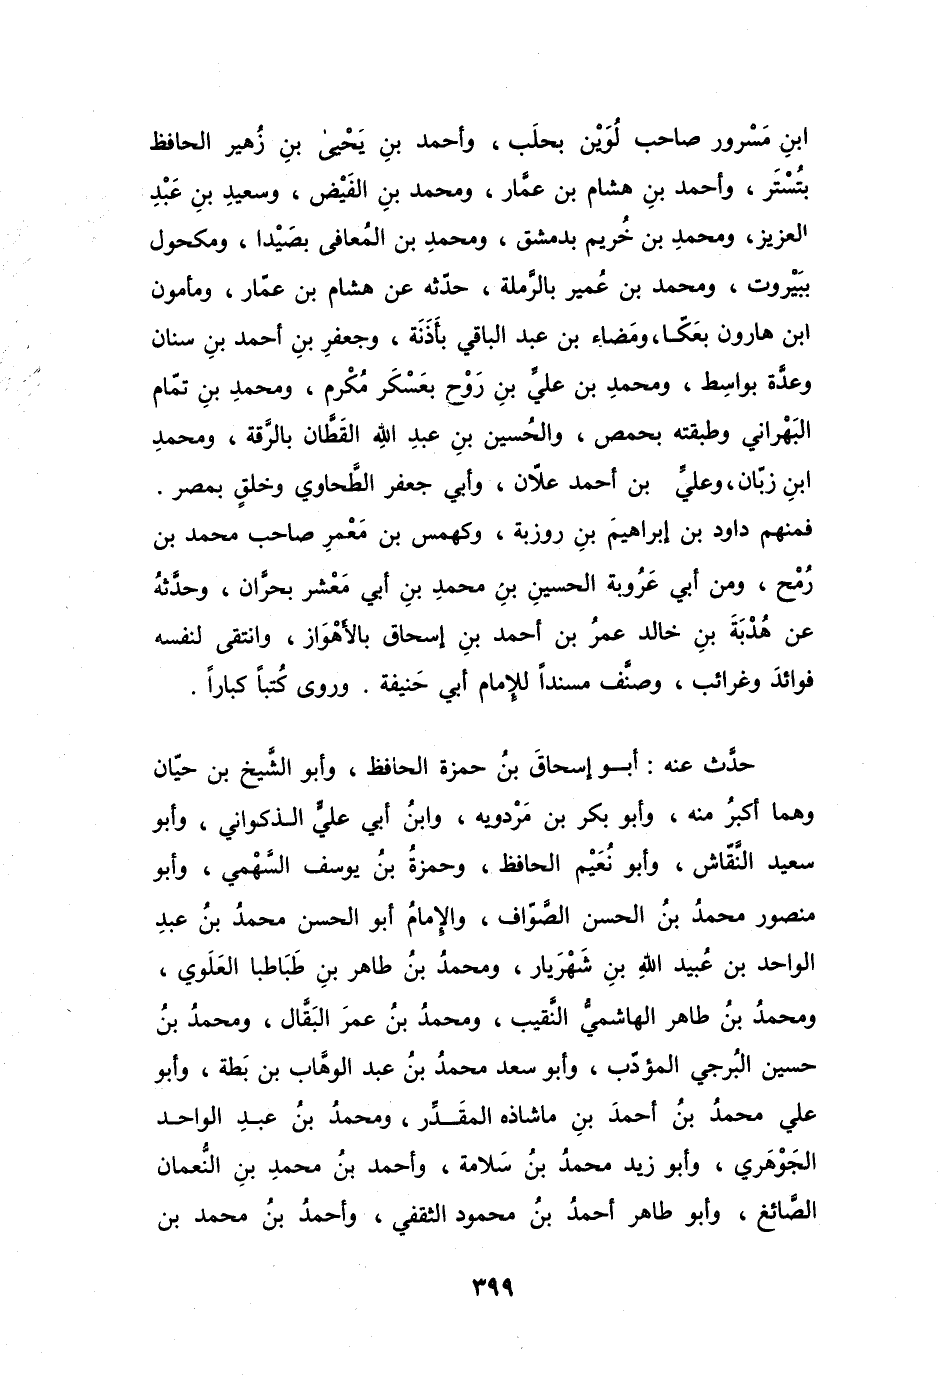 ابنِ مَسْرور صاحب لُوَيْن بحلَب ، وأحمد بنِ يَحْيىٰ بنِ زُهير الحافظ
بتُسْتَر ، وأحمد بنِ هشام بن عمَّار ، ومحمد بنِ الفَيْض ، وسعيدِ بنِ عَبْدِ
العزيز، ومحمدِ بن خُريم بدمشق ، ومحمدِ بن المُعافى بصَيْدا ، ومكحول
ببَيْروت ، ومحمد بن عُمير بالرَّملة ، حدّثه عن هشام بن عمّار ، ومأمون
ابن هارون بعَكّـا، ومَضاءِ بن عبد الباقي بأَذَنَة ، وجعفرِ بنِ أحمد بنِ سنان
وعدَّة بواسِط ، ومحمدِ بن عليِّ بنِ رَوْحٍ بعَسْكَر مُكْرم ، ومحمدِ بنِ تمّام
البَهْراني وطبقته بحمص ، والحُسين بنِ عبدِ اللهِ القَطَّان بالرَّقة ، ومحمدِ
ابنِ زبّان، وعليِّ بن أحمد علّان ، وأبي جعفر الطَّحاوي وخلقٍ بمصر .
فمنهم داود بن إبراهيمَ بنِ روزبة ، وكهمس بن مَعْمرِ صاحب محمد بن
رُمْح ، ومن أبي عَرُوبة الحسينِ بنِ محمدِ بنِ أبي مَعْشر بحرَّان ، وحدَّثهُ
عن هُدْبَةَ بنِ خالد عمرُ بن أحمد بنِ إسحاق بالأَهْوَاز ، وانتقى لنفسه
فوائدَ وغرائب ، وصنَّف مسنداً للإمام أبي حَنيفة . وروى كُتباً كباراً .
حدَّث عنه : أبـو إسحاقَ بنُ حمزة الحافظ ، وأبو الشَّيخ بن حيّان
وهما أكبرُ منه ، وأبو بكر بن مَرْدويه ، وابنُ أبي عليٍّ الـذكواني ، وأبو
سعيد النَّقّاش ، وأبو نُعَيْم الحافظ ، وحمزةُ بنُ يوسف السَّهْمي ، وأبو
منصور محمدُ بنُ الحسن الصَّوّاف ، والإمامُ أبو الحسن محمدُ بنُ عبدِ
الواحد بن عُبيد اللهِ بنِ شَهْرَيار ، ومحمدُ بنُ طاهر بنِ طَبَاطبا العَلَوي ،
ومحمدُ بنُ طاهر الهاشميُّ النَّقيب ، ومحمدُ بنُ عمرَ البَقَّال ، ومحمدُ بنُ
حسين البُرجي المؤدّب ، وأبو سعد محمدُ بنُ عبد الوهَّاب بن بَطة ، وأبو
علي محمدُ بنُ أحمدَ بنِ ماشاذه المقَـدِّر ، ومحمدُ بنُ عبـدِ الواحـد
الجَوْهَري ، وأبو زيد محمدُ بنُ سَلامة ، وأحمد بنُ محمدِ بنِ النُّعمان
الصَّائغ ، وأبو طاهر أحمدُ بنُ محمود الثقفي ، وأحمدُ بنُ محمد بن
٣٩٩